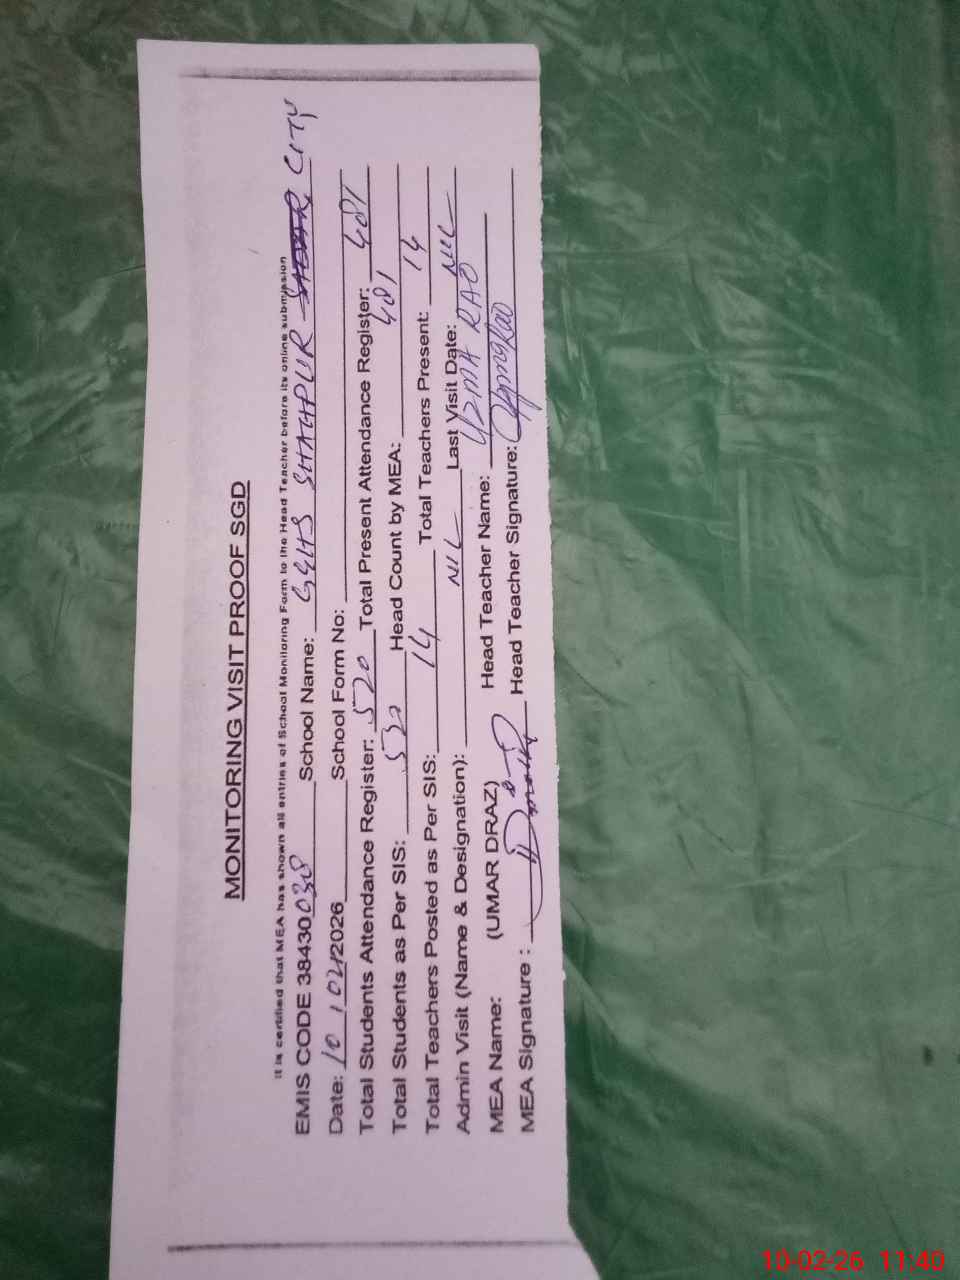 MONITORING VISIT PROOF SGD
It is certified that MEA has shown all entries of School Monitoring Form to the Head Teacher before its online submission
EMIS CODE 38430038 School Name: GGHS SHAHPUR CITY
Date: 10/02/2026 School Form No:
Total Students Attendance Register: 520 Total Present Attendance Register: 481
Total Students as Per SIS: 530 Head Count by MEA: 481
Total Teachers Posted as Per SIS: 14 Total Teachers Present: 14
Admin Visit (Name & Designation): NIL Last Visit Date: NIL
MEA Name: (UMAR DRAZ) Head Teacher Name: UZMA RAO
MEA Signature : Head Teacher Signature:
10-02-26 11:40